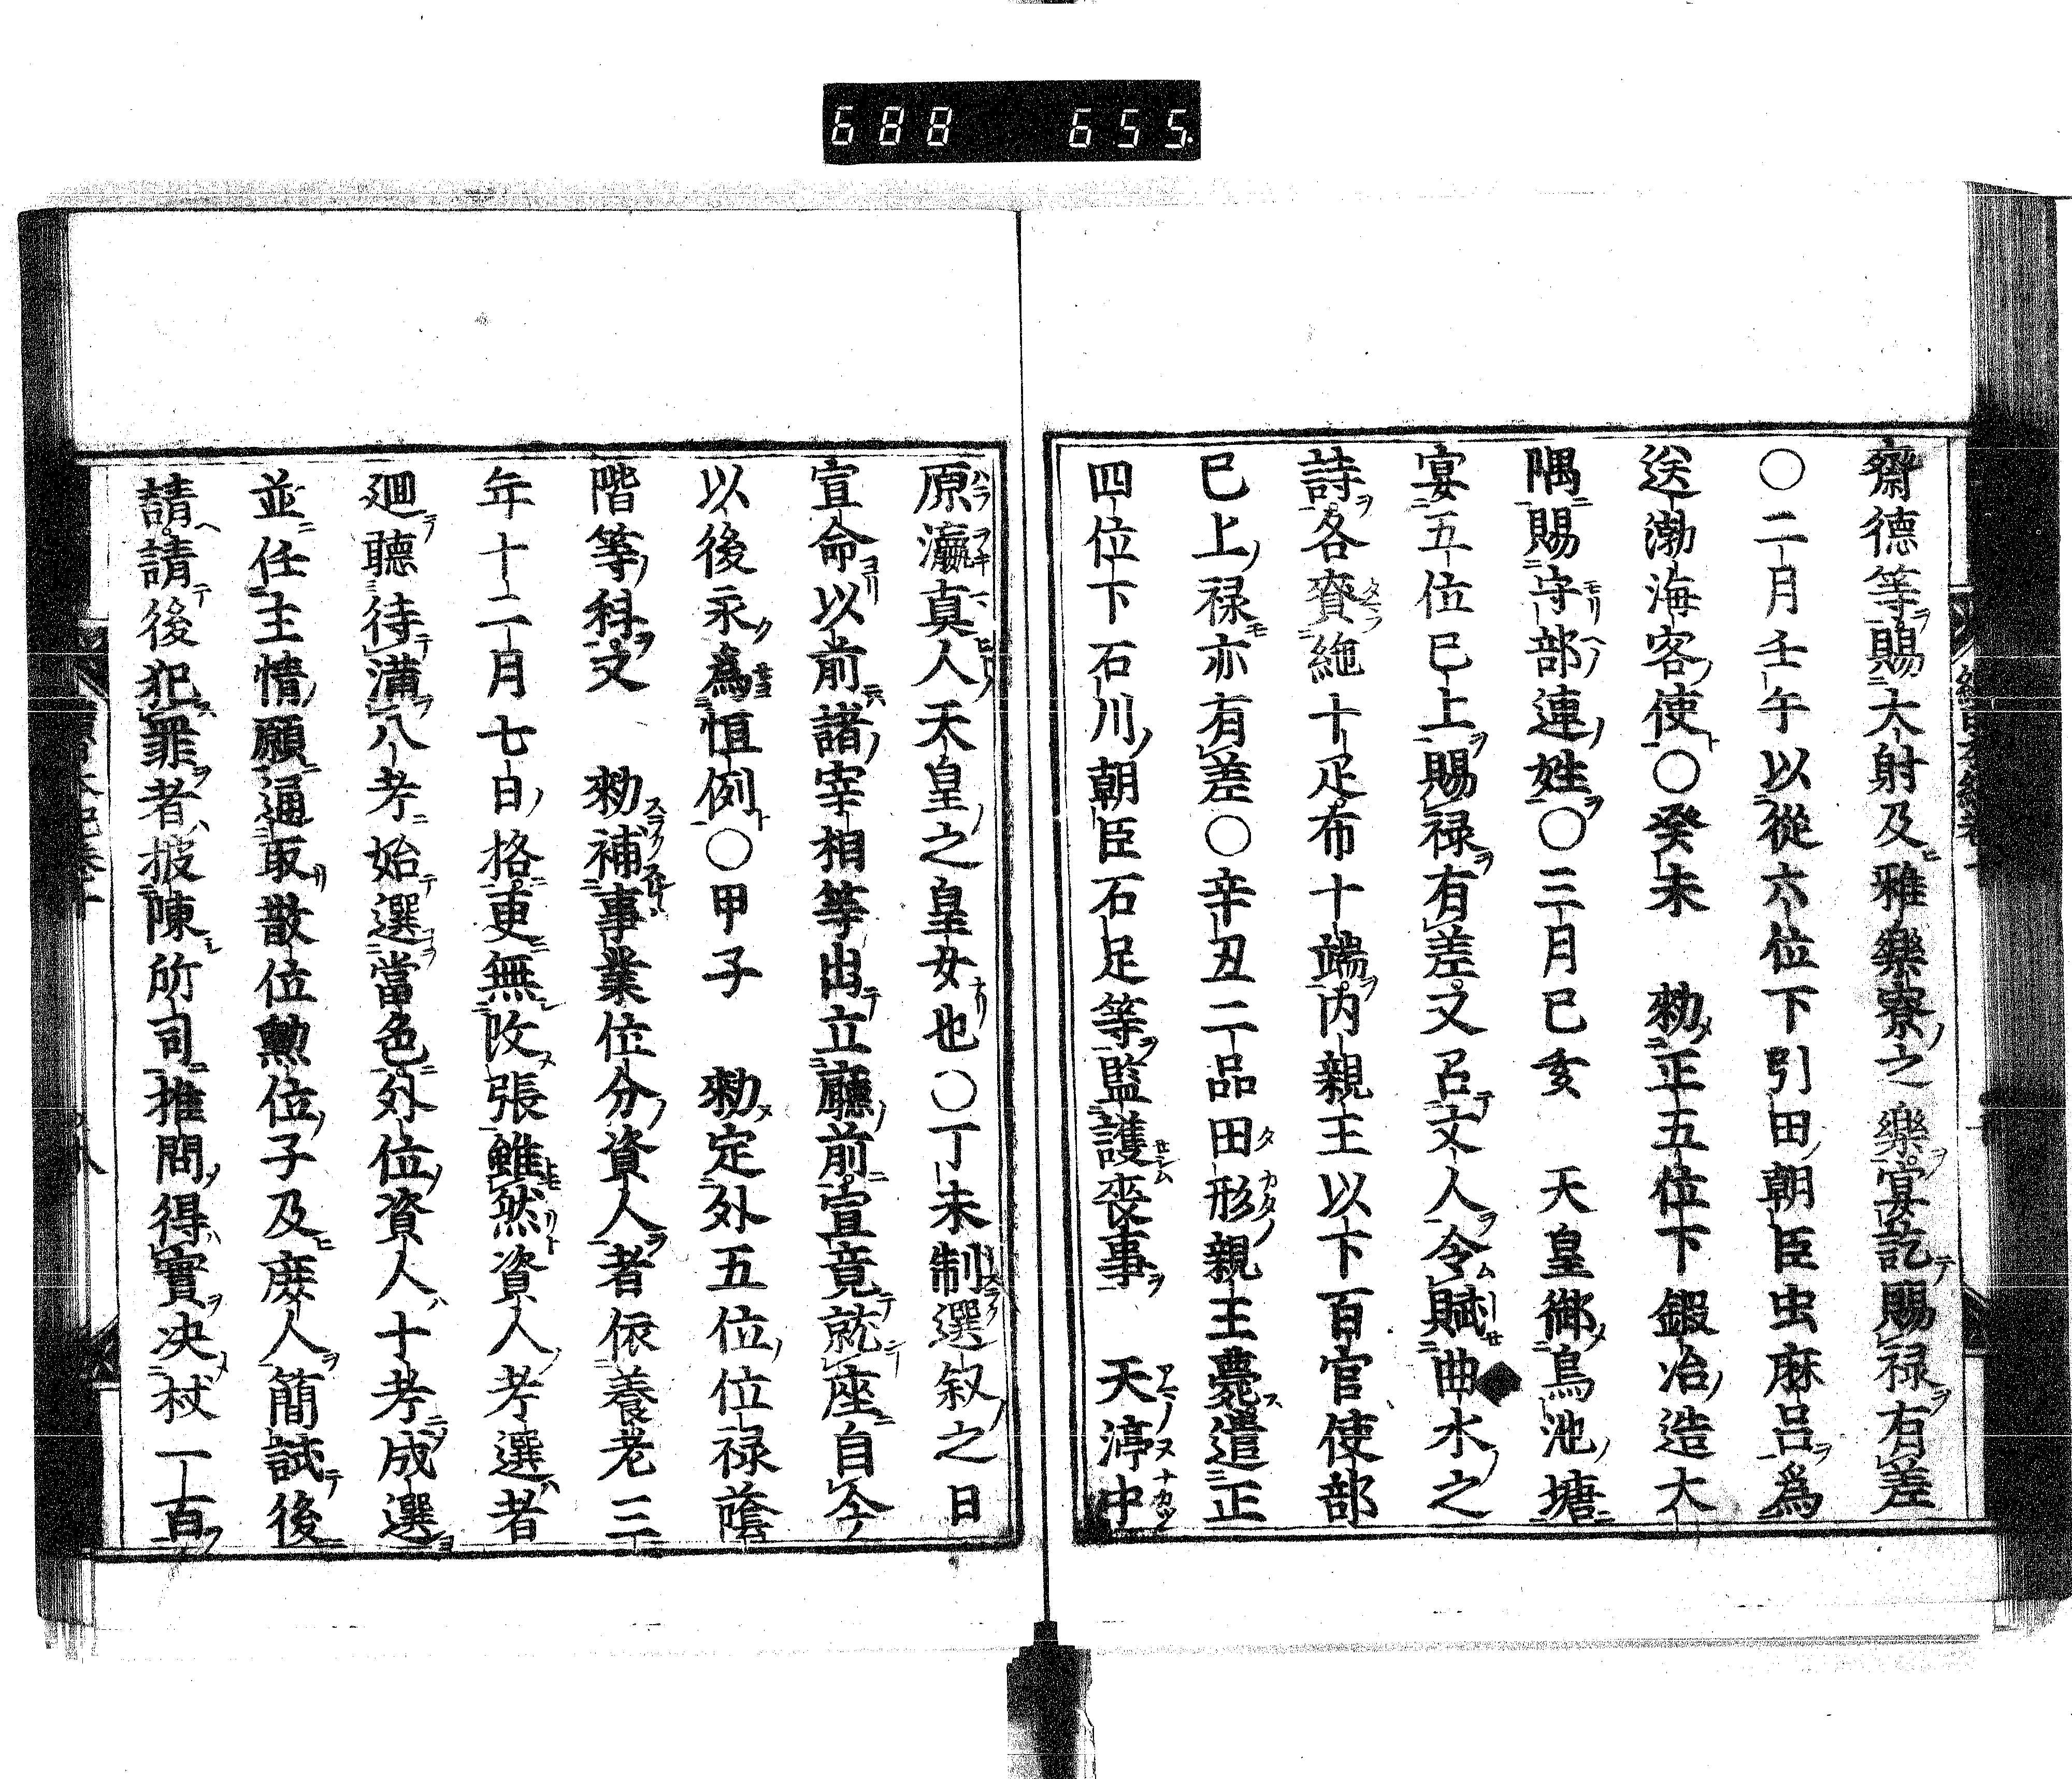 688 655
齋德等賜大射及雅樂寮之樂宴訖賜祿有差
○二月壬午以從六位下引田朝臣虫麻呂爲
送渤海客使○癸未 勑正五位下鍛冶造大
隅賜守部連姓○三月巳亥 天皇御鳥池塘
宴五位巳上賜祿有差又召文人令賦曲水之
詩各賚絁十疋布十端内親王以下百官使部
巳上祿亦有差○辛丑二品田形親王薨遣正
四位下石川朝臣石足等監護喪事 天渟中
原瀛真人天皇之皇女也○丁未制選叙之日
宣命以前諸宰相等出立廳前宣竟就座自今
以後永為恒例○甲子 勑定外五位位祿蔭
階等科又 勑補事業位分資人者依養老三
年十二月七日格更無改張雖然資人考選者
廻聽待滿八考始選當色外位資人十考成選
並任主情願通取散位勲位子及庶人簡試後
請請後犯罪者披陳所司推問得實决杖一百